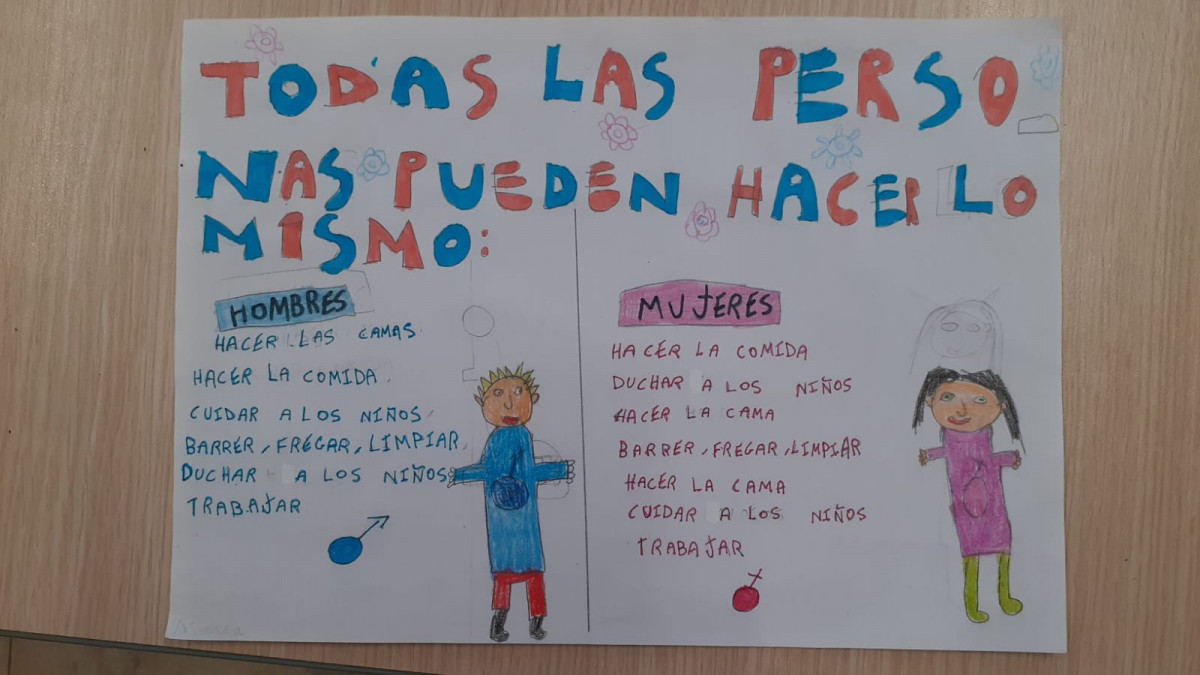 TODAS LAS PERSO_
NAS PUEDEN HACER LO
MISMO:
HOMBRES
HACER LAS CAMAS.
HACER LA COMIDA.
CUIDAR A LOS NIÑOS,
BARRER, FREGAR, LIMPIAR,
DUCHAR A LOS NIÑOS
TRABAJAR
MUJERES
HACER LA COMIDA
DUCHAR A LOS NIÑOS
HACER LA CAMA
BARRER, FREGAR, LIMPIAR
HACER LA CAMA
CUIDAR A LOS NIÑOS
TRABAJAR